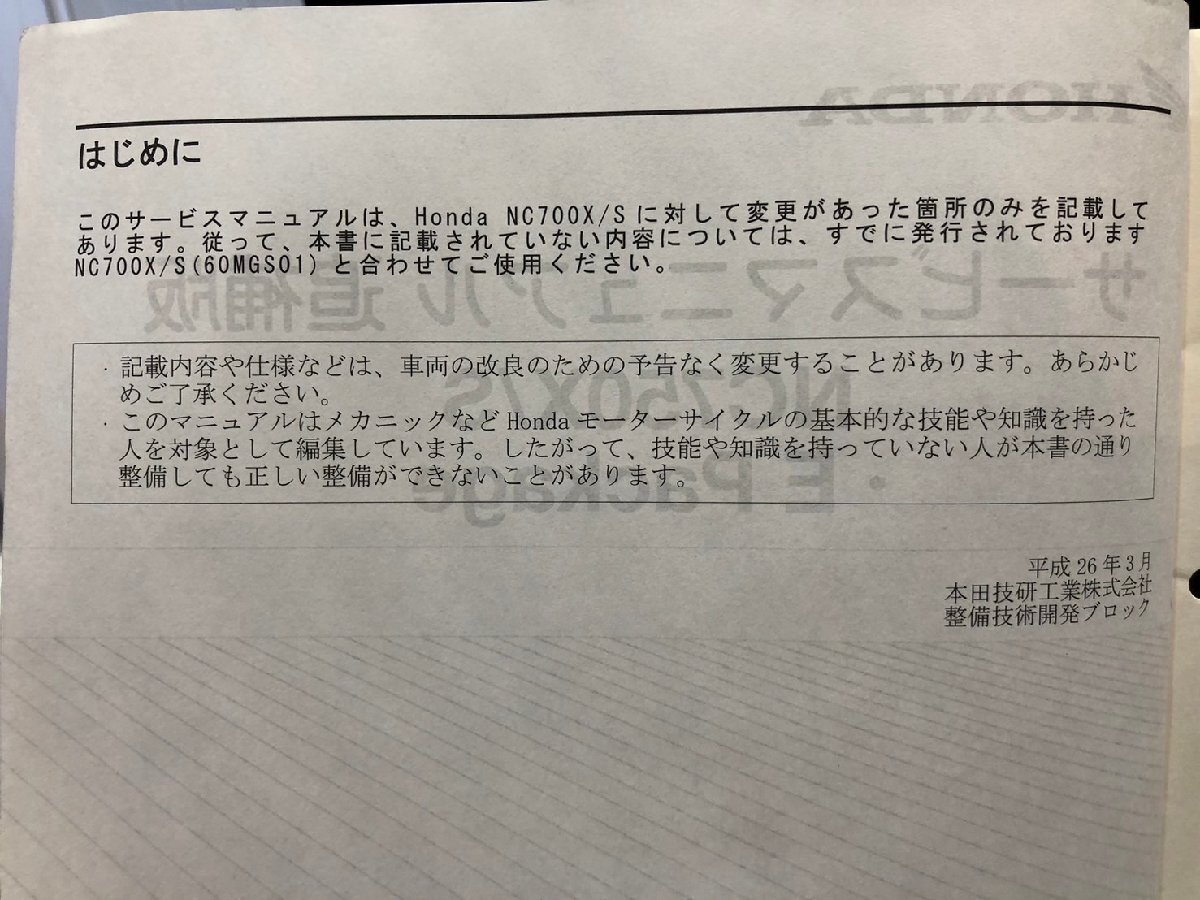 はじめに
このサービスマニュアルは、Honda NC700X/Sに対して変更があった箇所のみを記載して
あります。従って、本書に記載されていない内容については、すでに発行されております
NC700X/S(60MGS01)と合わせてご使用ください。
· 記載内容や仕様などは、車両の改良のための予告なく変更することがあります。あらかじ
めご了承ください。
· このマニュアルはメカニックなどHondaモーターサイクルの基本的な技能や知識を持った
人を対象として編集しています。したがって、技能や知識を持っていない人が本書の通り
整備しても正しい整備ができないことがあります。
平成26年3月
本田技研工業株式会社
整備技術開発ブロック
HONDA
サービスマニュアル 追補版
NC750X/S
· E Package